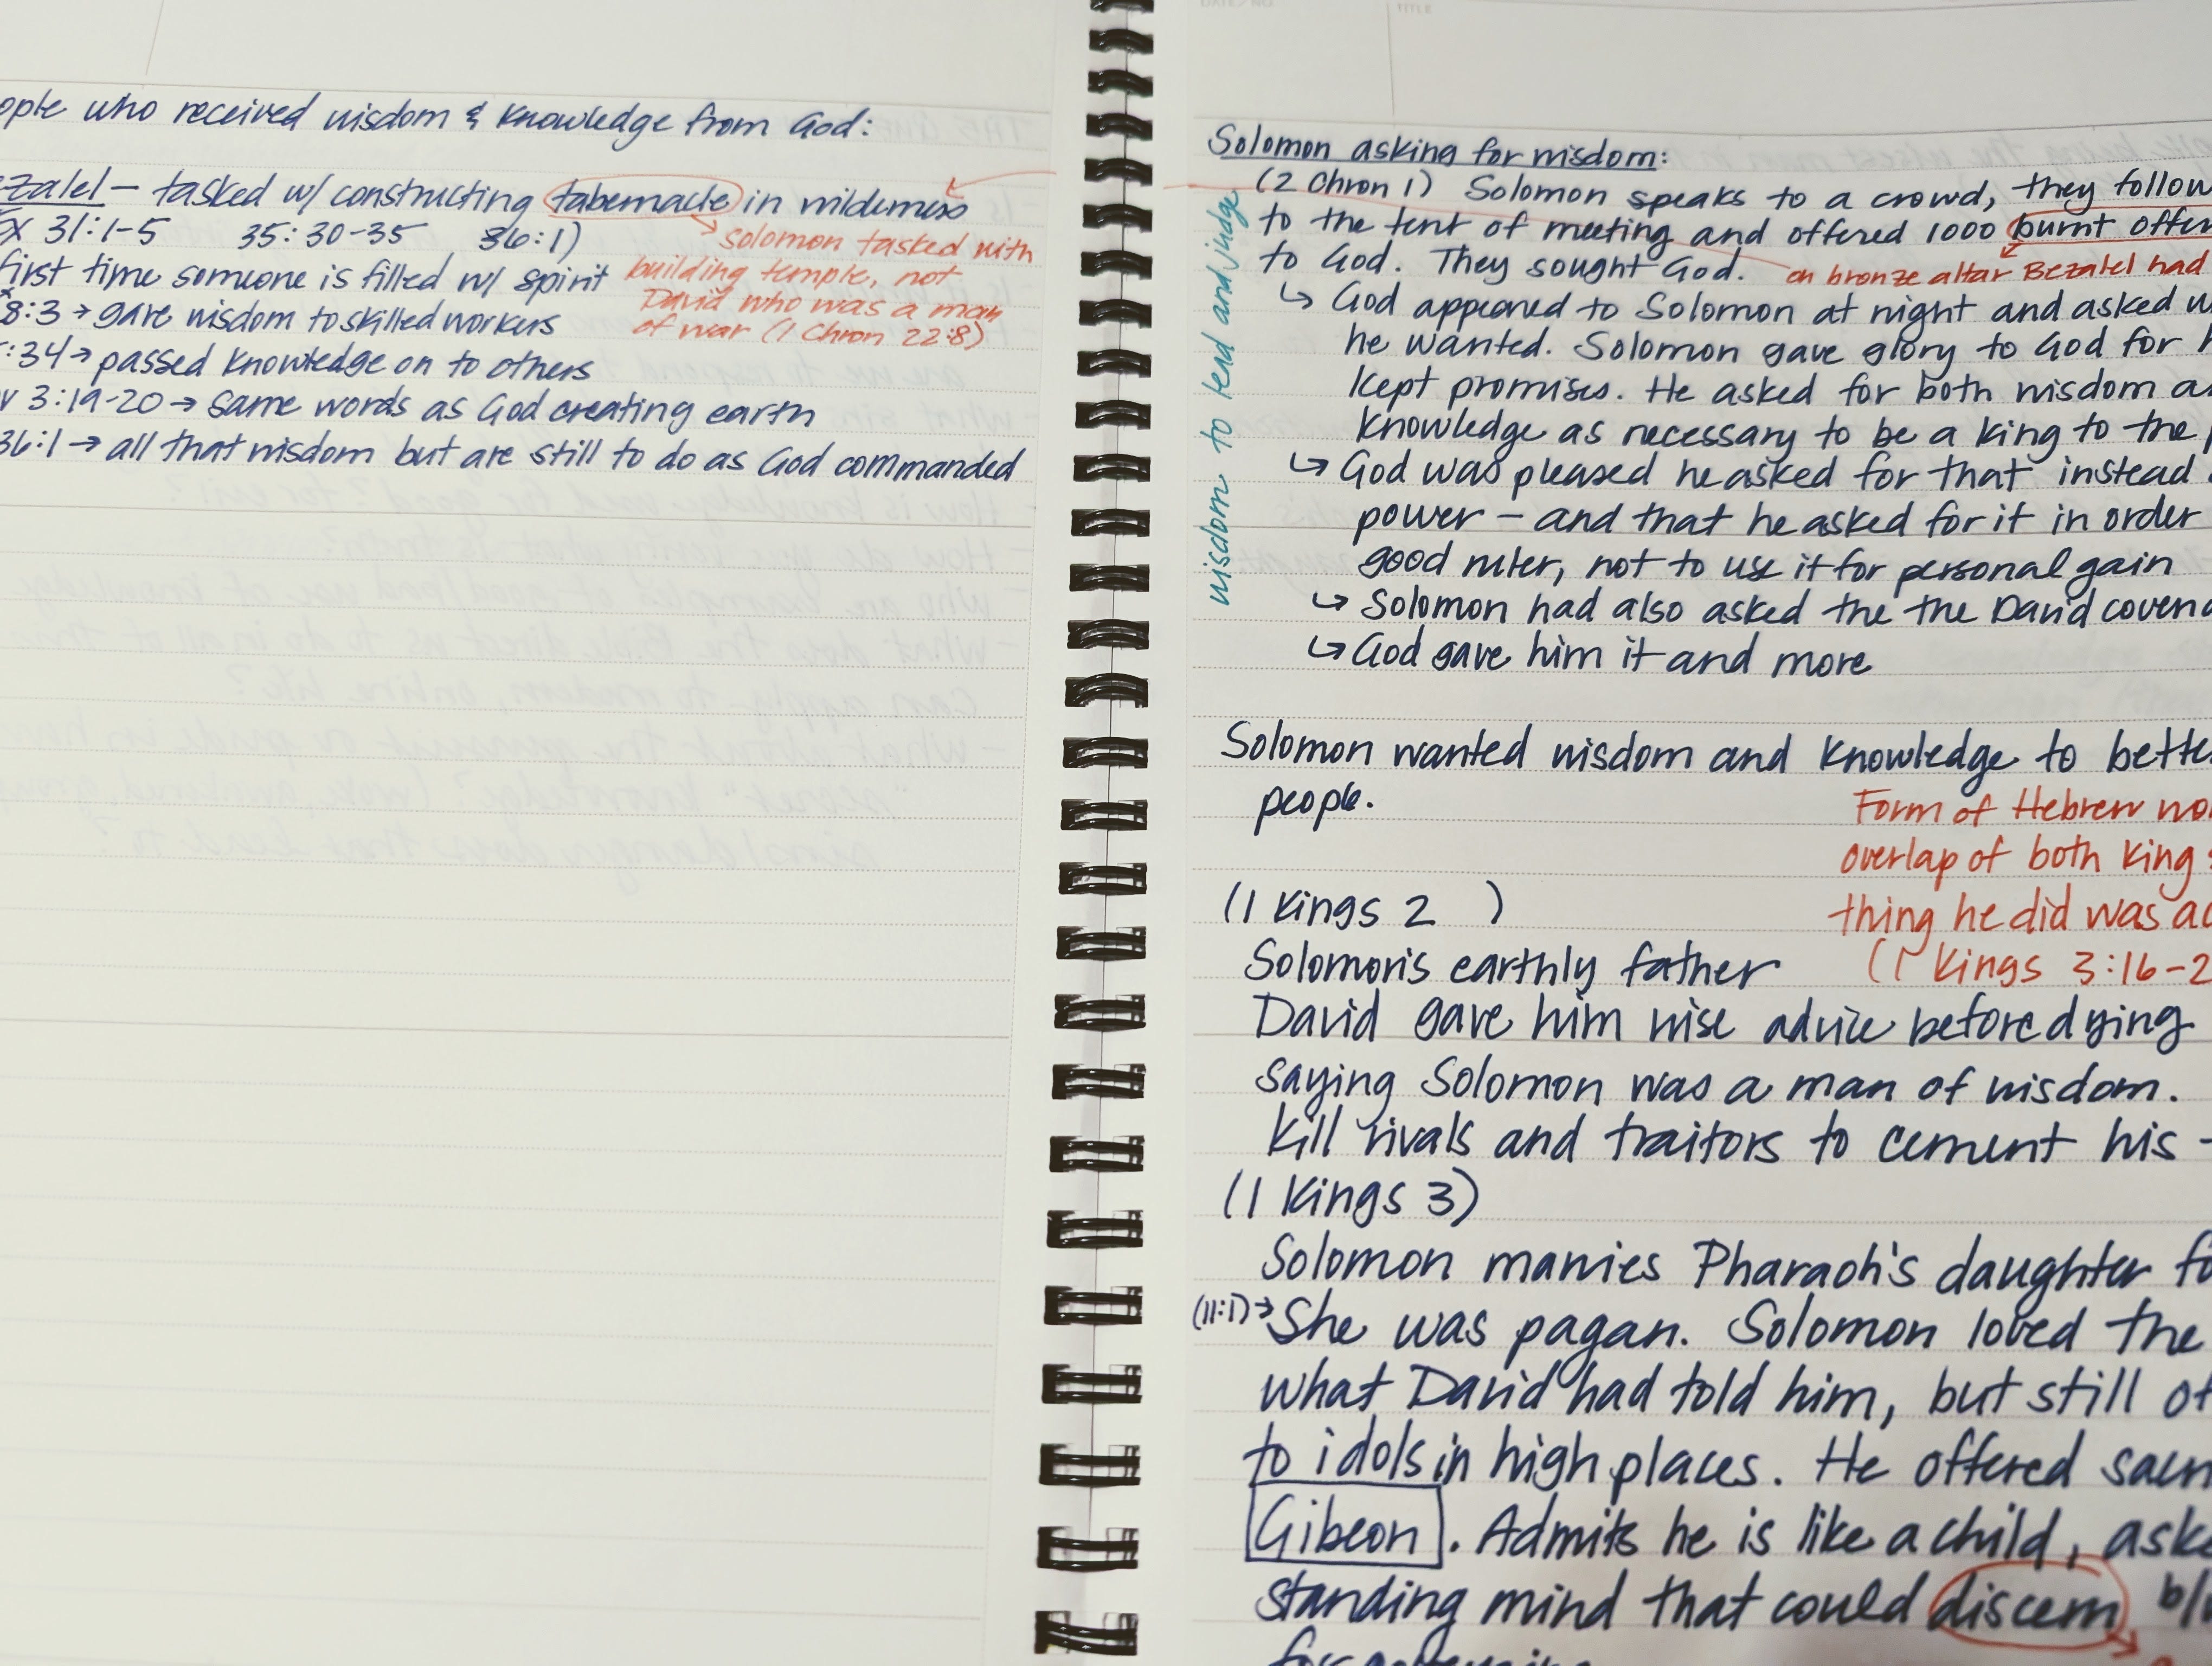 ople who received wisdom & knowledge from God:
zalel – tasked w/ constructing tabernacle in wilderness
Ex 31:1-5 35:30-35 36:1)
Solomon tasked with
building temple, not
David who was a man
of war (1 Chron 22:8)
first time someone is filled w/ spirit
8:3 → gave wisdom to skilled workers
:34 → passed knowledge on to others
v 3:19-20 → same words as God creating earth
36:1 → all that wisdom but are still to do as God commanded
Solomon asking for wisdom:
(2 Chron 1) Solomon speaks to a crowd, they follow
to the tent of meeting and offered 1000 burnt offer
to God. They sought God. on bronze altar Bezalel had
↳ God appeared to Solomon at night and asked w
he wanted. Solomon gave glory to God for h
kept promises. He asked for both wisdom a
knowledge as necessary to be a king to the p
↳ God was pleased he asked for that instead
power – and that he asked for it in order
good ruler, not to use it for personal gain
↳ Solomon had also asked the the David covena
↳ God gave him it and more
wisdom to lead and judge
Solomon wanted wisdom and knowledge to bette
people.
Form of Hebrew wo
overlap of both king
thing he did was ac
(1 Kings 3:16-2
(1 Kings 2 )
Solomon's earthly father
David gave him wise advice before dying
saying Solomon was a man of wisdom.
Kill rivals and traitors to cement his
(1 Kings 3)
Solomon marries Pharaoh's daughter fo
(11:1) → She was pagan. Solomon loved the
what David had told him, but still of
to idols in high places. He offered sacr
Gibeon. Admits he is like a child, aske
standing mind that could discern b/
for governing